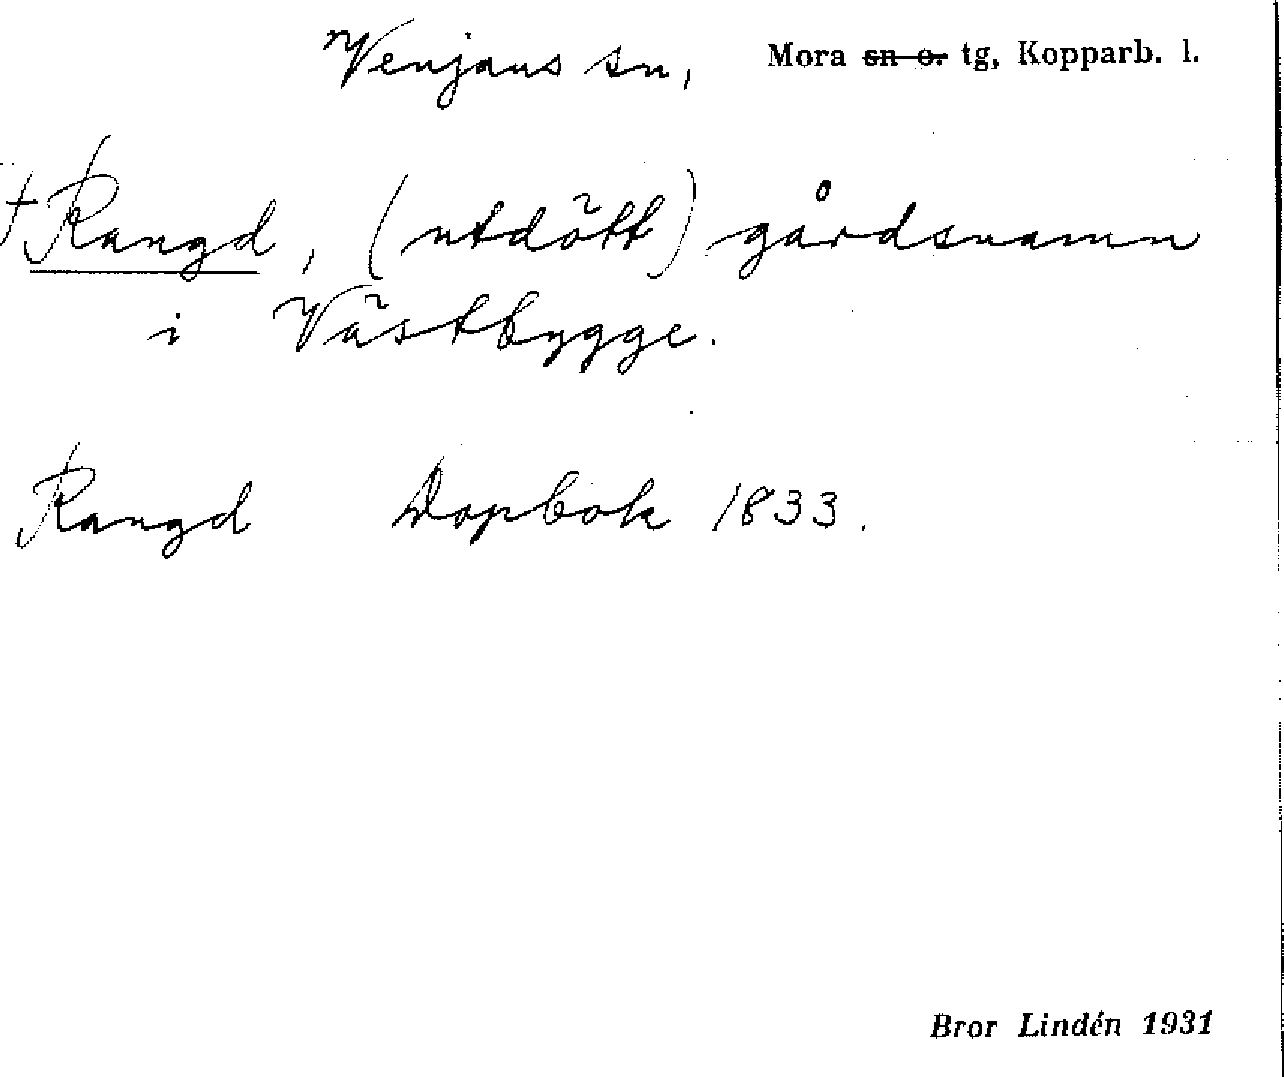 Venjans sn, Mora sn o. tg, Kopparb. l.
†Rangd, (utdött) gårdsnamn
i Västbygge.
Rangd Dopbok 1833.
Bror Lindén 1931